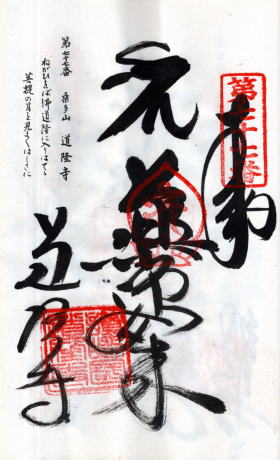 第七十七番
奉納
元
薬師如来
道隆寺
第七十七番 桑多山 道隆寺
ねがひをば佛道隆に入りはてゝ
菩提の月を見まくほしさに